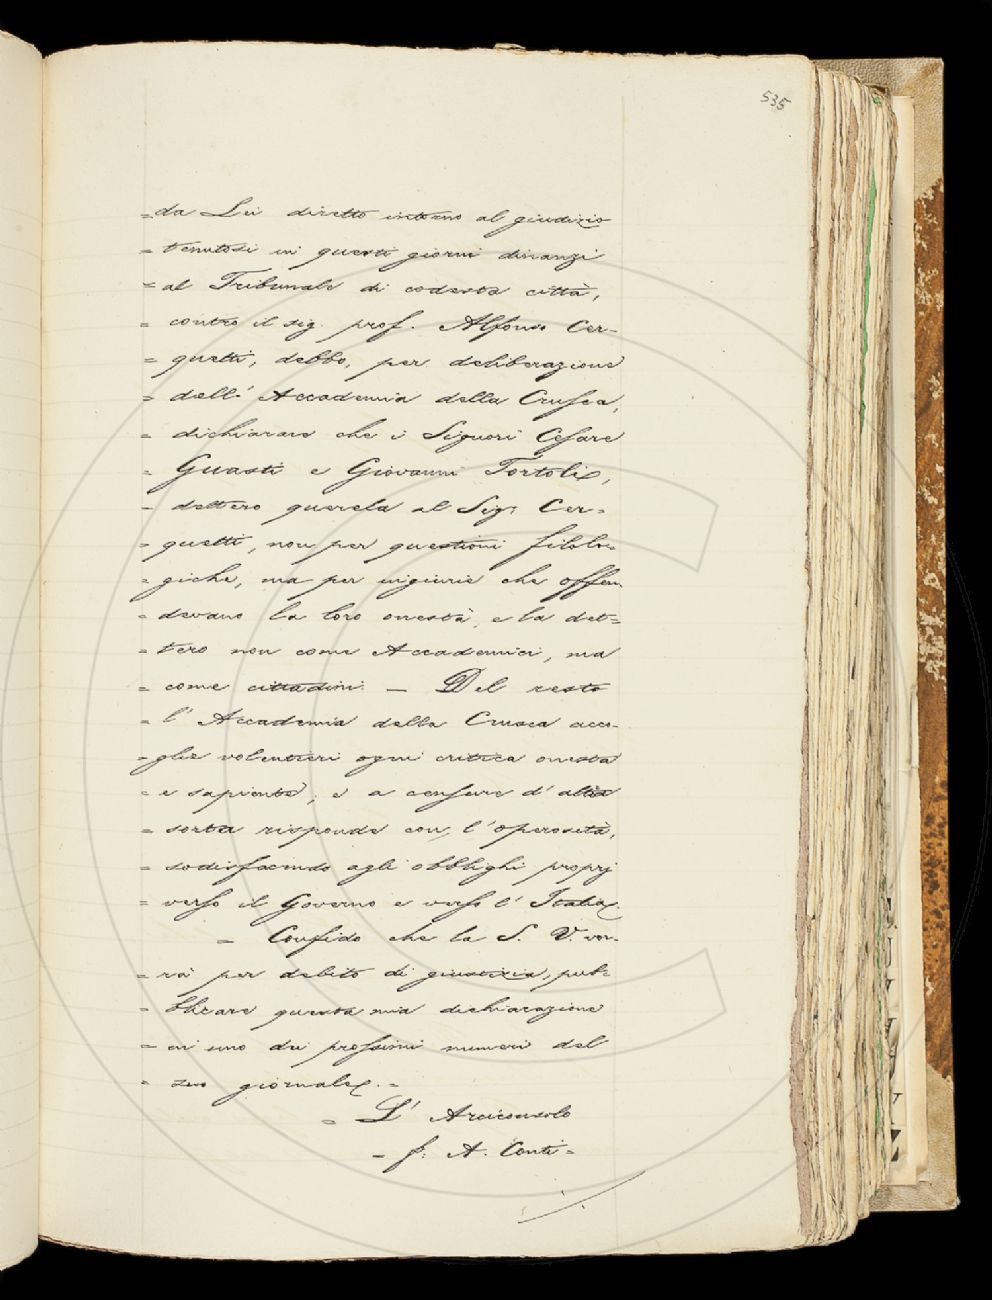 535
=da Lei diretto intorno al giudizio
= tenutosi in questi giorni dinanzi
= al Tribunale di codesta città,
= contro il sig. prof. Alfonso Cer-
= quetti, debbo, per deliberazione
= dell' Accademia della Crusca,
= dichiarare che i Signori Cesare
= Guasti e Giovanni Tortoli,
= dettero querela al Sig. Cer-
= quetti, non per questioni filolo-
= giche, ma per ingiurie che offen-
= devano la loro onestà, e la det-
= tero non come Accademici, ma
= come cittadini. — Del resto
= l' Accademia della Crusca acco-
= glie volentieri ogni critica onesta
= e sapiente; e a censure d' altra
= sorta risponde con l' operosità,
= sodisfacendo agli obblighi proprj
= verso il Governo e verso l' Italia.
= Confido che la S. V. vor-
= rà per debito di giustizia, pub-
= blicare questa mia dichiarazione
= in uno dei prossimi numeri del
= suo giornale. =
= L' Arciconsolo
= f: A. Conti =